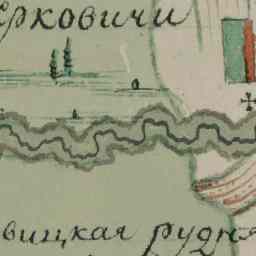 Ерковичи
вицкая рудня